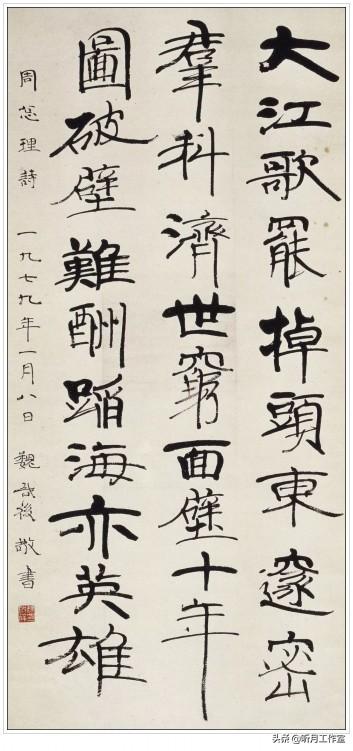 大江歌罷掉頭東邃密
羣科濟世窮面壁十年
圖破壁難酬蹈海亦英雄
周总理詩 一九七九年一月八日 魏 後敬書
头条@听月工作室